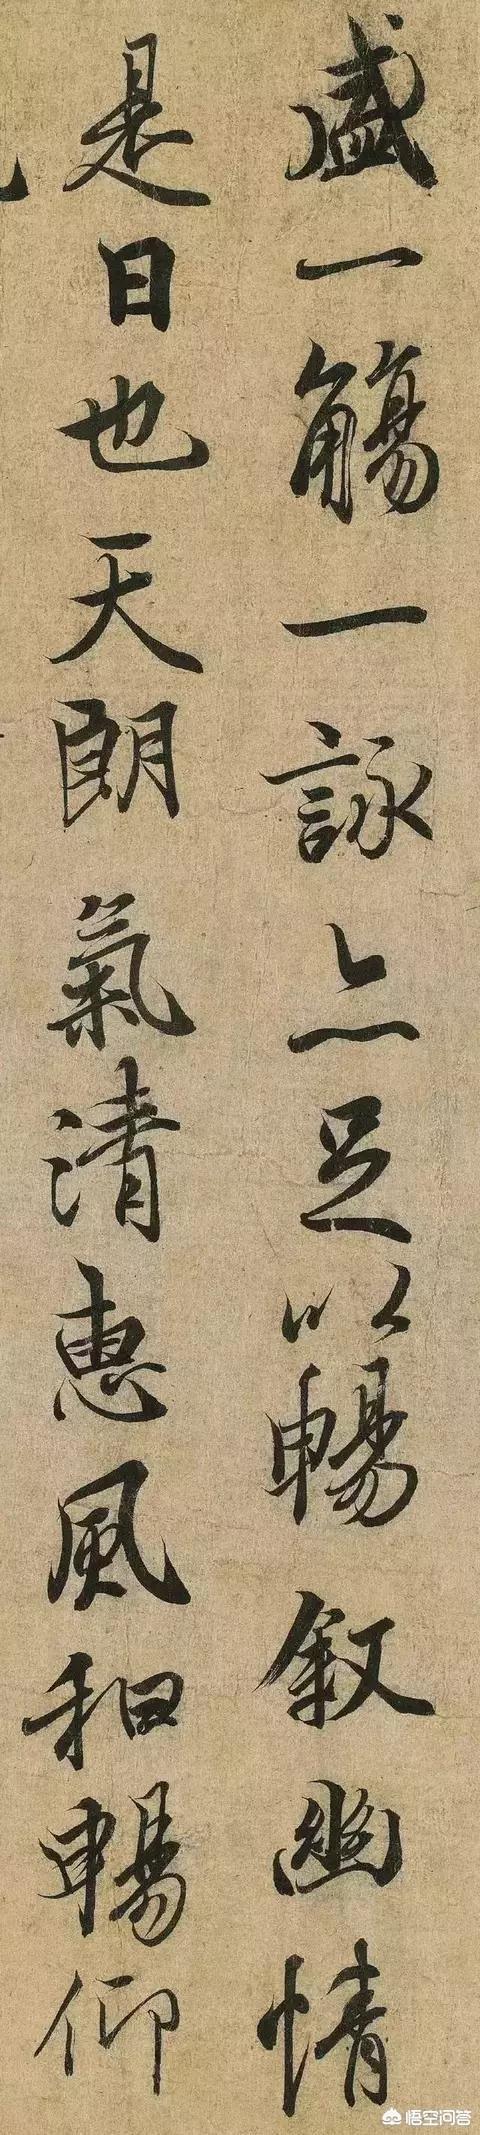 盛一觴一詠亦足以暢敘幽情
是日也天朗氣清惠風和暢仰
悟空问答